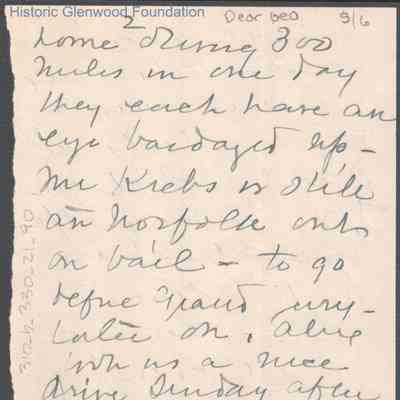 Historic Glenwood Foundation
Dear Geo 9/6
2
home driving 300
miles in one day
they each have an
eye bandaged up -
Mr Krebs is still
in Norfolk out
on bail - to go
before Grand jury -
later on.
took us a nice
drive Sunday after